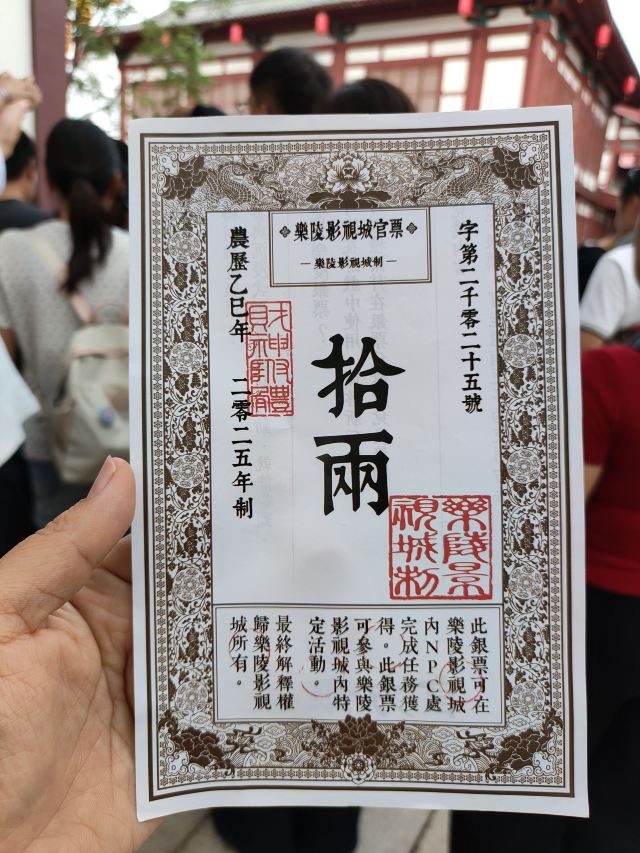 樂陵影視城官票
樂陵影視城制
字第二千零二十五號
拾兩
農歷乙巳年 二零二五年制
樂陵影視城制
此銀票可在
樂陵影視城
內NPC處
完成任務獲
得。此銀票
可參與樂陵
影視城內特
定活動。
最終解釋權
歸樂陵影視
城所有。